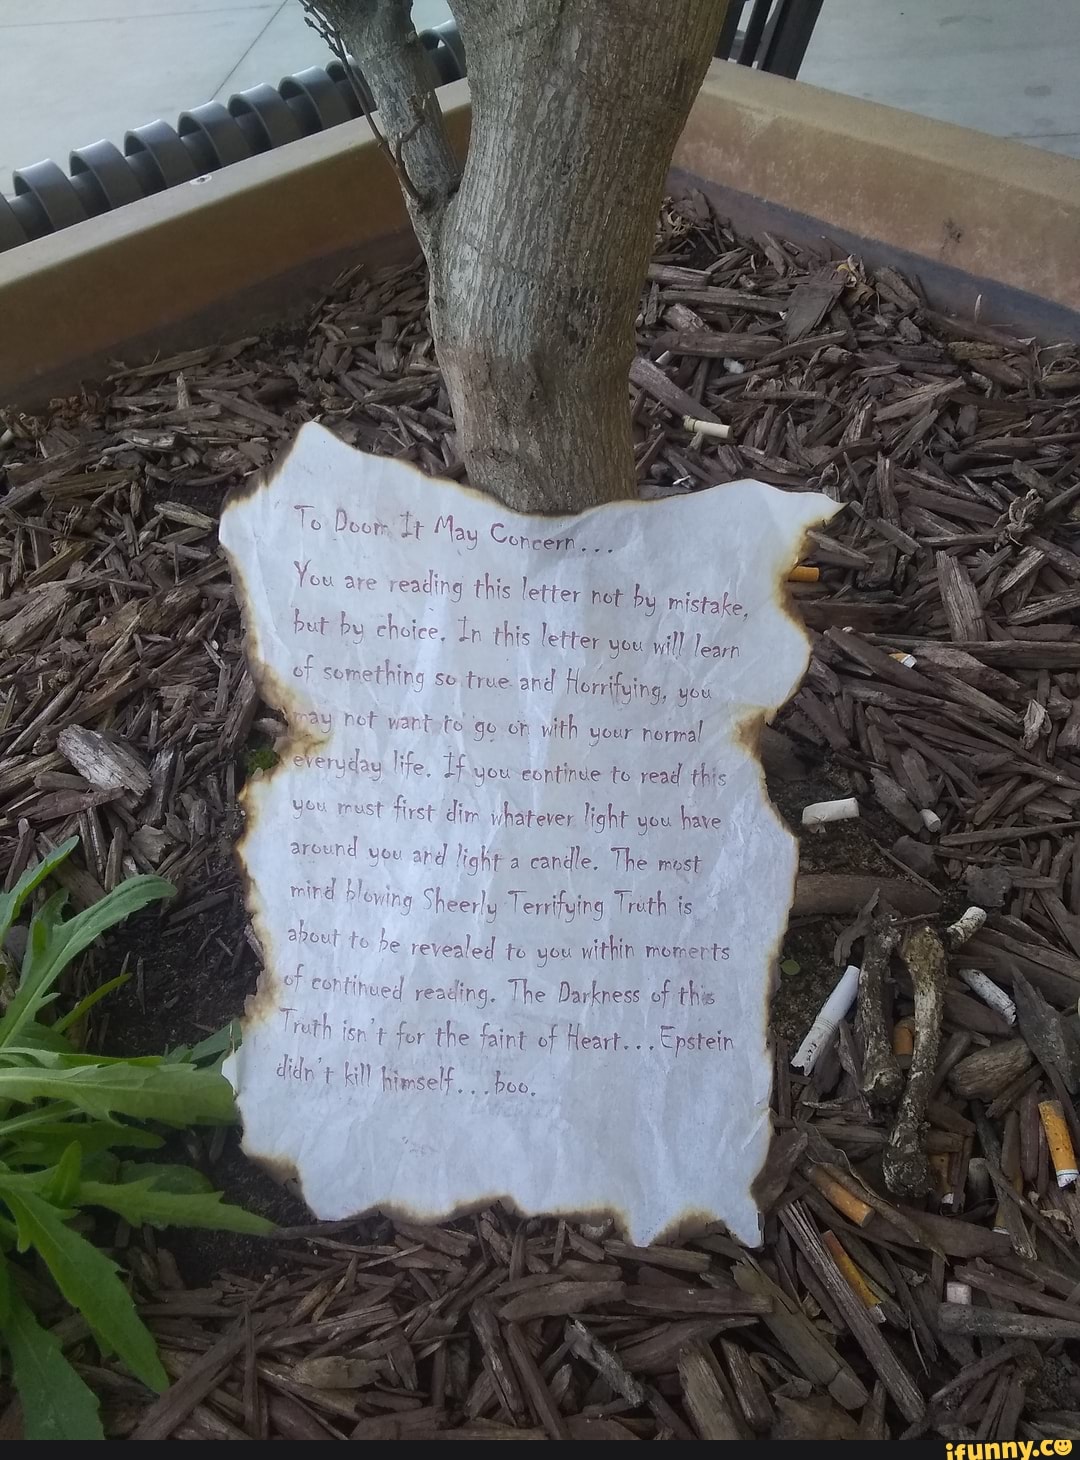 To Doom It May Concern...
You are reading this letter not by mistake,
but by choice. In this letter you will learn
of something so true and Horrifying, you
may not want to go on with your normal
everyday life. If you continue to read this
you must first dim whatever light you have
around you and light a candle. The most
mind blowing Sheerly Terrifying Truth is
about to be revealed to you within moments
of continued reading. The Darkness of this
Truth isn't for the faint of Heart... Epstein
didn't kill himself...boo.
ifunny.co